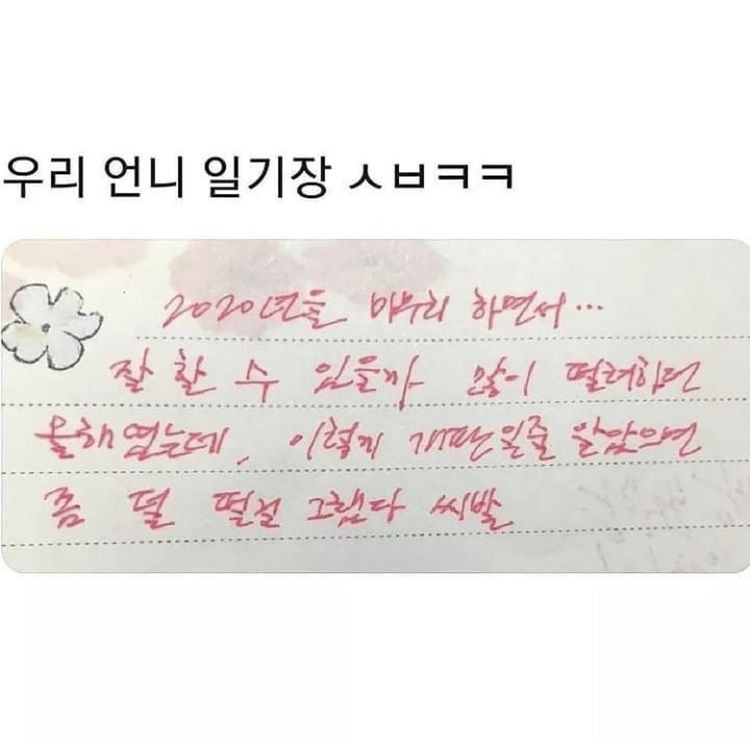 우리 언니 일기장 ㅅㅂㅋㅋ
2020년을 마무리 하면서...
잘 할 수 있을까 많이 떨려하던
올해였는데, 이렇게 개판일줄 알았으면
좀 덜 떨걸 그랬다 씨발